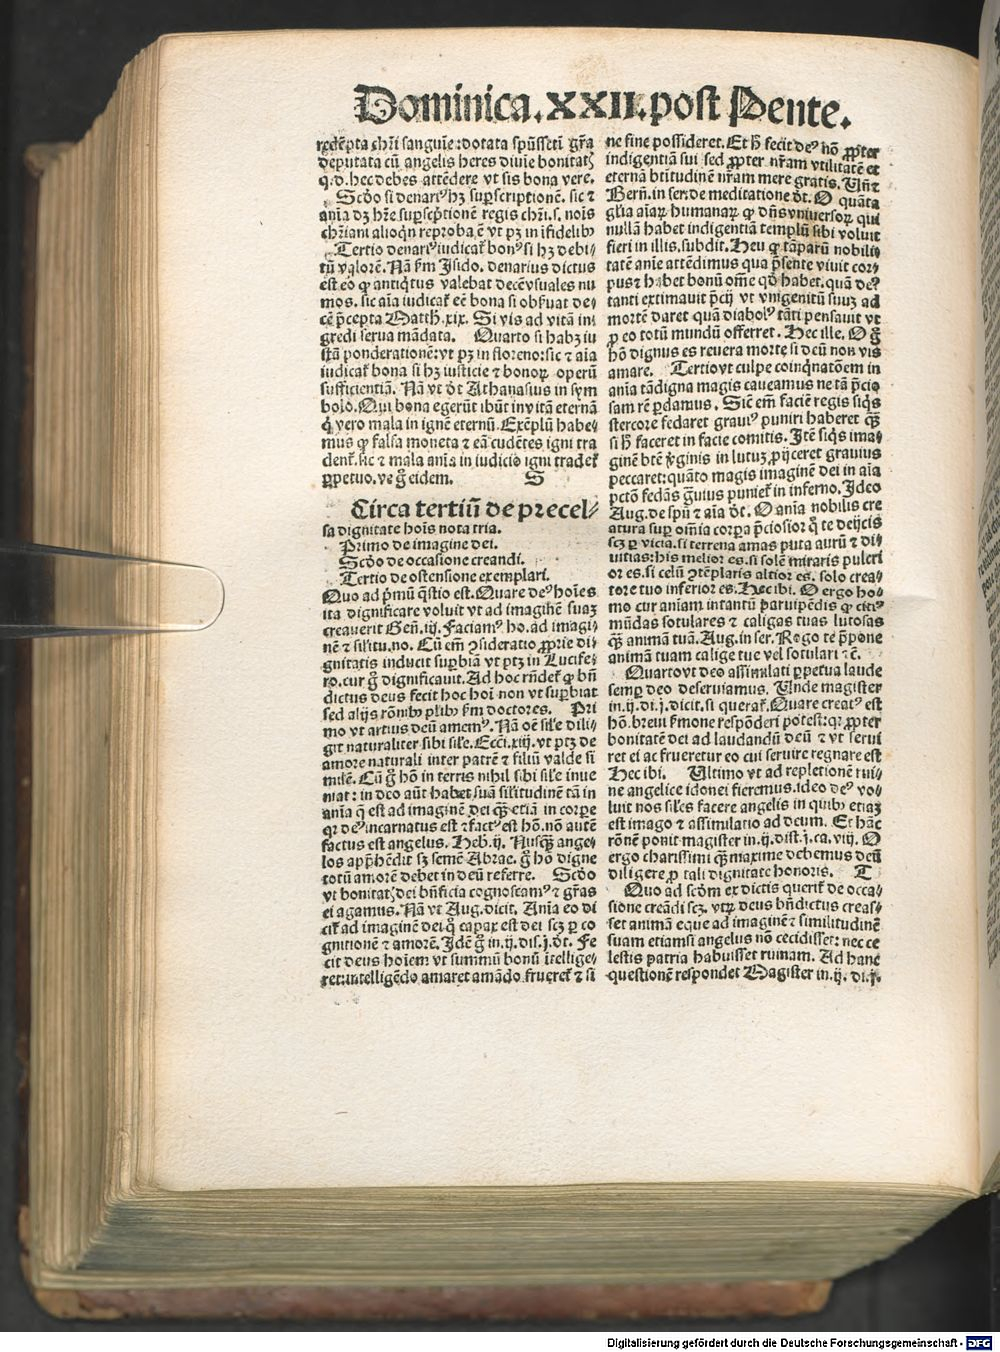 Dominica.XXII.post Pente.
redēpta chr̄i sanguīe:dotata spūssctī gr̄a
deputata cū angelis heres diuīe bonitatꝭ
q.d.hec debes attēdere vt sis bona vere.
Scd̓o si denariꝰ hꝫ suꝑscriptionē. sic ⁊
aīa dꝫ hr̄e suꝑscp̄tionē regis chr̄i.s. nois
chr̄iani alioqn̄ reproba ē vt pꝫ in ifidelibꝰ
Tertio denariꝰ iudicat᷑ bonꝰ si hꝫ debi⸗
tū valorē. Nā ẜm Isido. denarius dictus
est eo̓ ꝙ antiqͥtus valebat decē vsuales nu
mos. sic aīa iudicat᷑ eē bona si obẜuat de⸗
cē p̄cepta Matth.xix. Si vis ad vitā in⸗
gredi serua mādata. Quarto si habꝫ iu
stā ponderationē:vt pꝫ in floreno:sic ⁊ aīa
iudicat᷑ bona si hꝫ iusticie ⁊ bonoꝝ operū
sufficientiā. Nā vt dt̄ Athanasius in sym
bolo. Qui bona egerūt ibūt in vitā eternā
q̓ vero mala in ignē eternū. Exēplū habe⸗
mus ꝙ falsa moneta ⁊ eā cudētes igni tra
dent᷑. sic ⁊ mala anīa in iudicio igni tradet᷑
ꝑpetuo. ve g̊ eidem. S
Circa tertiū de precel⸗
sa dignitate hoīs nota tria.
Primo de imagine dei.
Scd̓o de occasione creandi.
Tertio de ostensione exemplari.
Quo ad pͥmū q̄stio est. Quare deꝰ hoīes
ita dignificare voluit vt ad imaginē suaꝫ
creauerit Gen̄.iij. Faciamꝰ ho. ad imagi⸗
nē ⁊ sil̓itu.no. Cū em̄ ꝯsideratio ꝓprie di⸗
gnitatis inducit suꝑbiā vt ptꝫ in Lucife⸗
ro. cur g̊ dignificauit. Ad hoc rn̄det᷑ ꝙ bn̄
dictus deus fecit hoc hoi non vt suꝑbiat
sed alijs rōnibꝰ pl̓ibꝰ ẜm doctores. Pri
mo vt artius deū amemꝰ. Nā oē sil̓e dili⸗
git naturaliter sibi sil̓e. Ecc̓i.xiij. vt ptꝫ de
amore naturali inter patrē ⁊ filiū valde si
milē. Cū g̊ hō in terris nihil sibi sil̓e inue
niat: in deo aūt habet suā sil̓itudinē tā in
anīa q̄ est ad imaginē dei qͣꝫ etiā in corꝑe
qꝛ deꝰ incarnatus est ⁊ factꝰ est hō. nō autē
factus est angelus. Heb.ij. Nusqͣꝫ ange⸗
los app̄hēdit sꝫ semē Abrae. g̊ hō digne
totū amorē debet in deū referre. Scd̓o
vt bonitatꝭ dei bn̄ficia cognoscamꝰ ⁊ gr̄as
ei agamus. Nā vt Aug. dicit. Anīa eo di
cit᷑ ad imaginē dei q̊ capax est dei scꝫ ꝑ co
gnitionē ⁊ amorē. Idē g̊ in.ij.dis.j.dt̄. Fe
cit deus hoīem vt summū bonū itellige⸗
ret:intelligēdo amaret amādo frueret᷑ ⁊ si
ne fine possideret. Et h̄ fecit deꝰ nō ꝓpter
indigentiā sui sed ꝓpter nr̄am vtilitatē et
eternā btītudinē nr̄am mere gratis. Vn̄ ⁊
Bern̄. in ser. de meditatione dt̄. O quāta
gl̓ia aīaꝝ humanaꝝ ꝙ dn̄s vniuersoꝝ qui
nullā habet indigentiā templū sibi voluit
fieri in illis. subdit. Heu ꝙ tā parū nobili⸗
tatē anīe attēdimus qua p̄sente viuit cor⸗
pus ⁊ habet bonū om̄e qd̓ habet. quā deꝰ
tanti extimauit p̄cij vt vnigenitū suuꝫ ad
mortē daret quā diabolꝰ tāti pensauit vt
ꝓ eo totū mundū offerret. Hec ille. O g̊
hō dignus es reuera morte si deū non vis
amare. Tertio vt culpe coinqͥnatōem in
anīa tā digna magis caueamus ne tā p̄cio
sam rē ꝑdamus. Sic̄ em̄ faciē regis siqͥs
stercore fedaret grauiꝰ puniri haberet qͣꝫ
si h̄ faceret in facie comitis. Itē siqͥs ima⸗
ginē btē ꝟginis in lutuꝫ ꝓijceret grauius
peccaret:quāto magis imaginē dei in aīa
pctō fedās g̊uius puniet᷑ in inferno. Ideo
Aug. de spū ⁊ aīa dt̄. O anīa nobilis cre
atura suꝑ om̄ia corꝑa p̄ciosior q̊ te deijcis
scꝫ ꝑ vicia. si terrena amas puta aurū ⁊ di⸗
uitias: his melior es. si solē miraris pulcri
or es. si celū ꝯtēplaris altior es. solo crea⸗
tore tuo inferior es. Hec ibi. O ergo ho⸗
mo cur aniam intantū paruipēdis ꝙ citiꝰ
mūdas sotulares ⁊ caligas tuas lutosas
qͣꝫ animā tuā. Aug. in ser. Rogo te p̄pone
animā tuam calige tue vel sotulari ⁊c̄.
Quarto vt deo assimilati ꝑpetua laude
semꝑ deo deseruiamus. Vnde magister
in.ij.di.j.dicit. si querat᷑. Quare creatꝰ est
hō. breui ẜmone respōderi potest:qꝛ ꝓpter
bonitatē dei ad laudandū deū ⁊ vt serui
ret ei ac frueretur eo cui seruire regnare est
Hec ibi. Ultimo vt ad repletionē rui⸗
ne angelice idonei fieremus. ideo deꝰ vo⸗
luit nos sil̓es facere angelis in quibꝰ etiaꝫ
est imago ⁊ assimilatio ad deum. Et hāc
rōnē ponit magister in.ij.dist.j.ca.viij. O
ergo charissimi qͣꝫ maxime debemus deū
diligere ꝓ tali dignitate honoris. T
Quo ad scd̓m ex dictis querit᷑ de occa⸗
sione creādi scꝫ. vtꝝ deus bn̄dictus creas⸗
set animā eque ad imaginē ⁊ similitudinē
suam etiamsi angelus nō cecidisset: nec ce
lestis patria habuisset ruinam. Ad hanc
questionē respondet Magister in.ij. di.j.
Digitalisierung gefördert durch die Deutsche Forschungsgemeinschaft - DFG